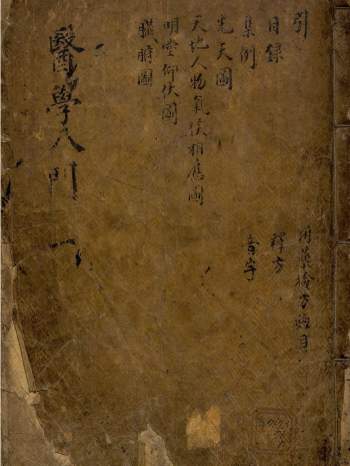 醫學入門 一
引
目錄
集例
先天圖
天地人物氣候相應圖
明堂仰伏圖
臟腑圖
用藥檢方總目
釋方
音字